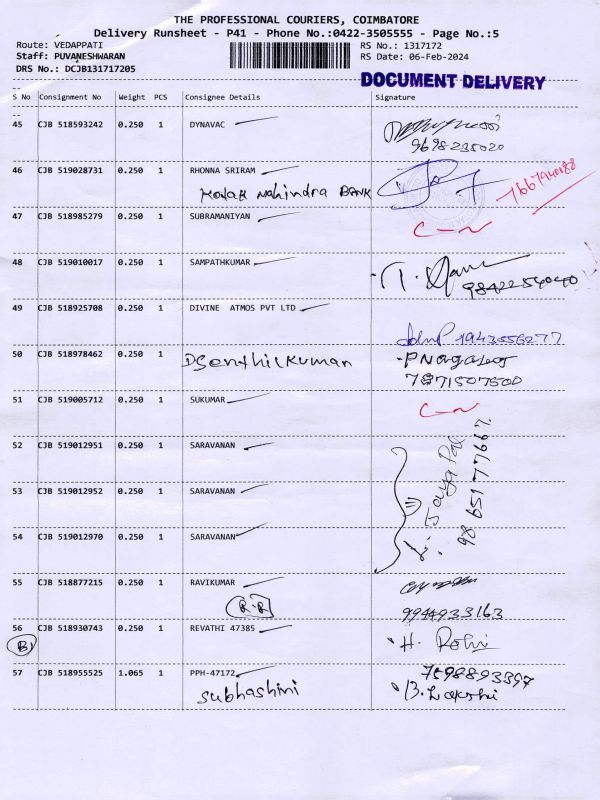 THE PROFESSIONAL COURIERS, COIMBATORE
Delivery Runsheet - P41 - Phone No.:0422-3505555 - Page No.:5
Route: VEDAPPATI RS No.: 1317172
Staff: PUVANESHWARAN RS Date: 06-Feb-2024
DRS No.: DCJB131717205
DOCUMENT DELIVERY
S No Consignment No Weight PCS Consignee Details Signature
45 CJB 518593242 0.250 1 DYNAVAC
9698235020
46 CJB 519028731 0.250 1 RHONNA SRIRAM
Kotak Mahindra BANK 7667940188
47 CJB 518985279 0.250 1 SUBRAMANIYAN
48 CJB 519010017 0.250 1 SAMPATHKUMAR
9842254040
49 CJB 518925708 0.250 1 DIVINE ATMOS PVT LTD
1943556277
50 CJB 518978462 0.250 1 DSenthilkumar
7871507500
51 CJB 519005712 0.250 1 SUKUMAR
52 CJB 519012951 0.250 1 SARAVANAN
Jaya Pal
9865177667
53 CJB 519012952 0.250 1 SARAVANAN
54 CJB 519012970 0.250 1 SARAVANAN
55 CJB 518877215 0.250 1 RAVIKUMAR
R.R 9944933163
56 CJB 518930743 0.250 1 REVATHI 47385
B H. Rohi
57 CJB 518955525 1.065 1 PPH-47172 7598893397
Subhashini B. Lakshi